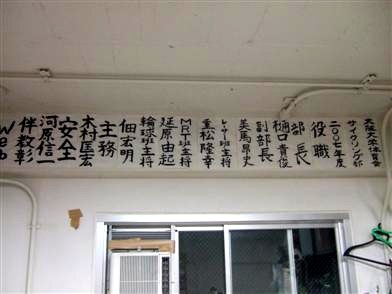 大阪大学体育会
サイクリング部
二〇〇七年度
役職
部長
樋口貴俊
副部長
美馬昂史
レーサー班主将
重松隆幸
MRT班主将
延原由起
輪球班主将
佃宏明
主務
木村匡宏
安全
河原信一
伴教彰
Web